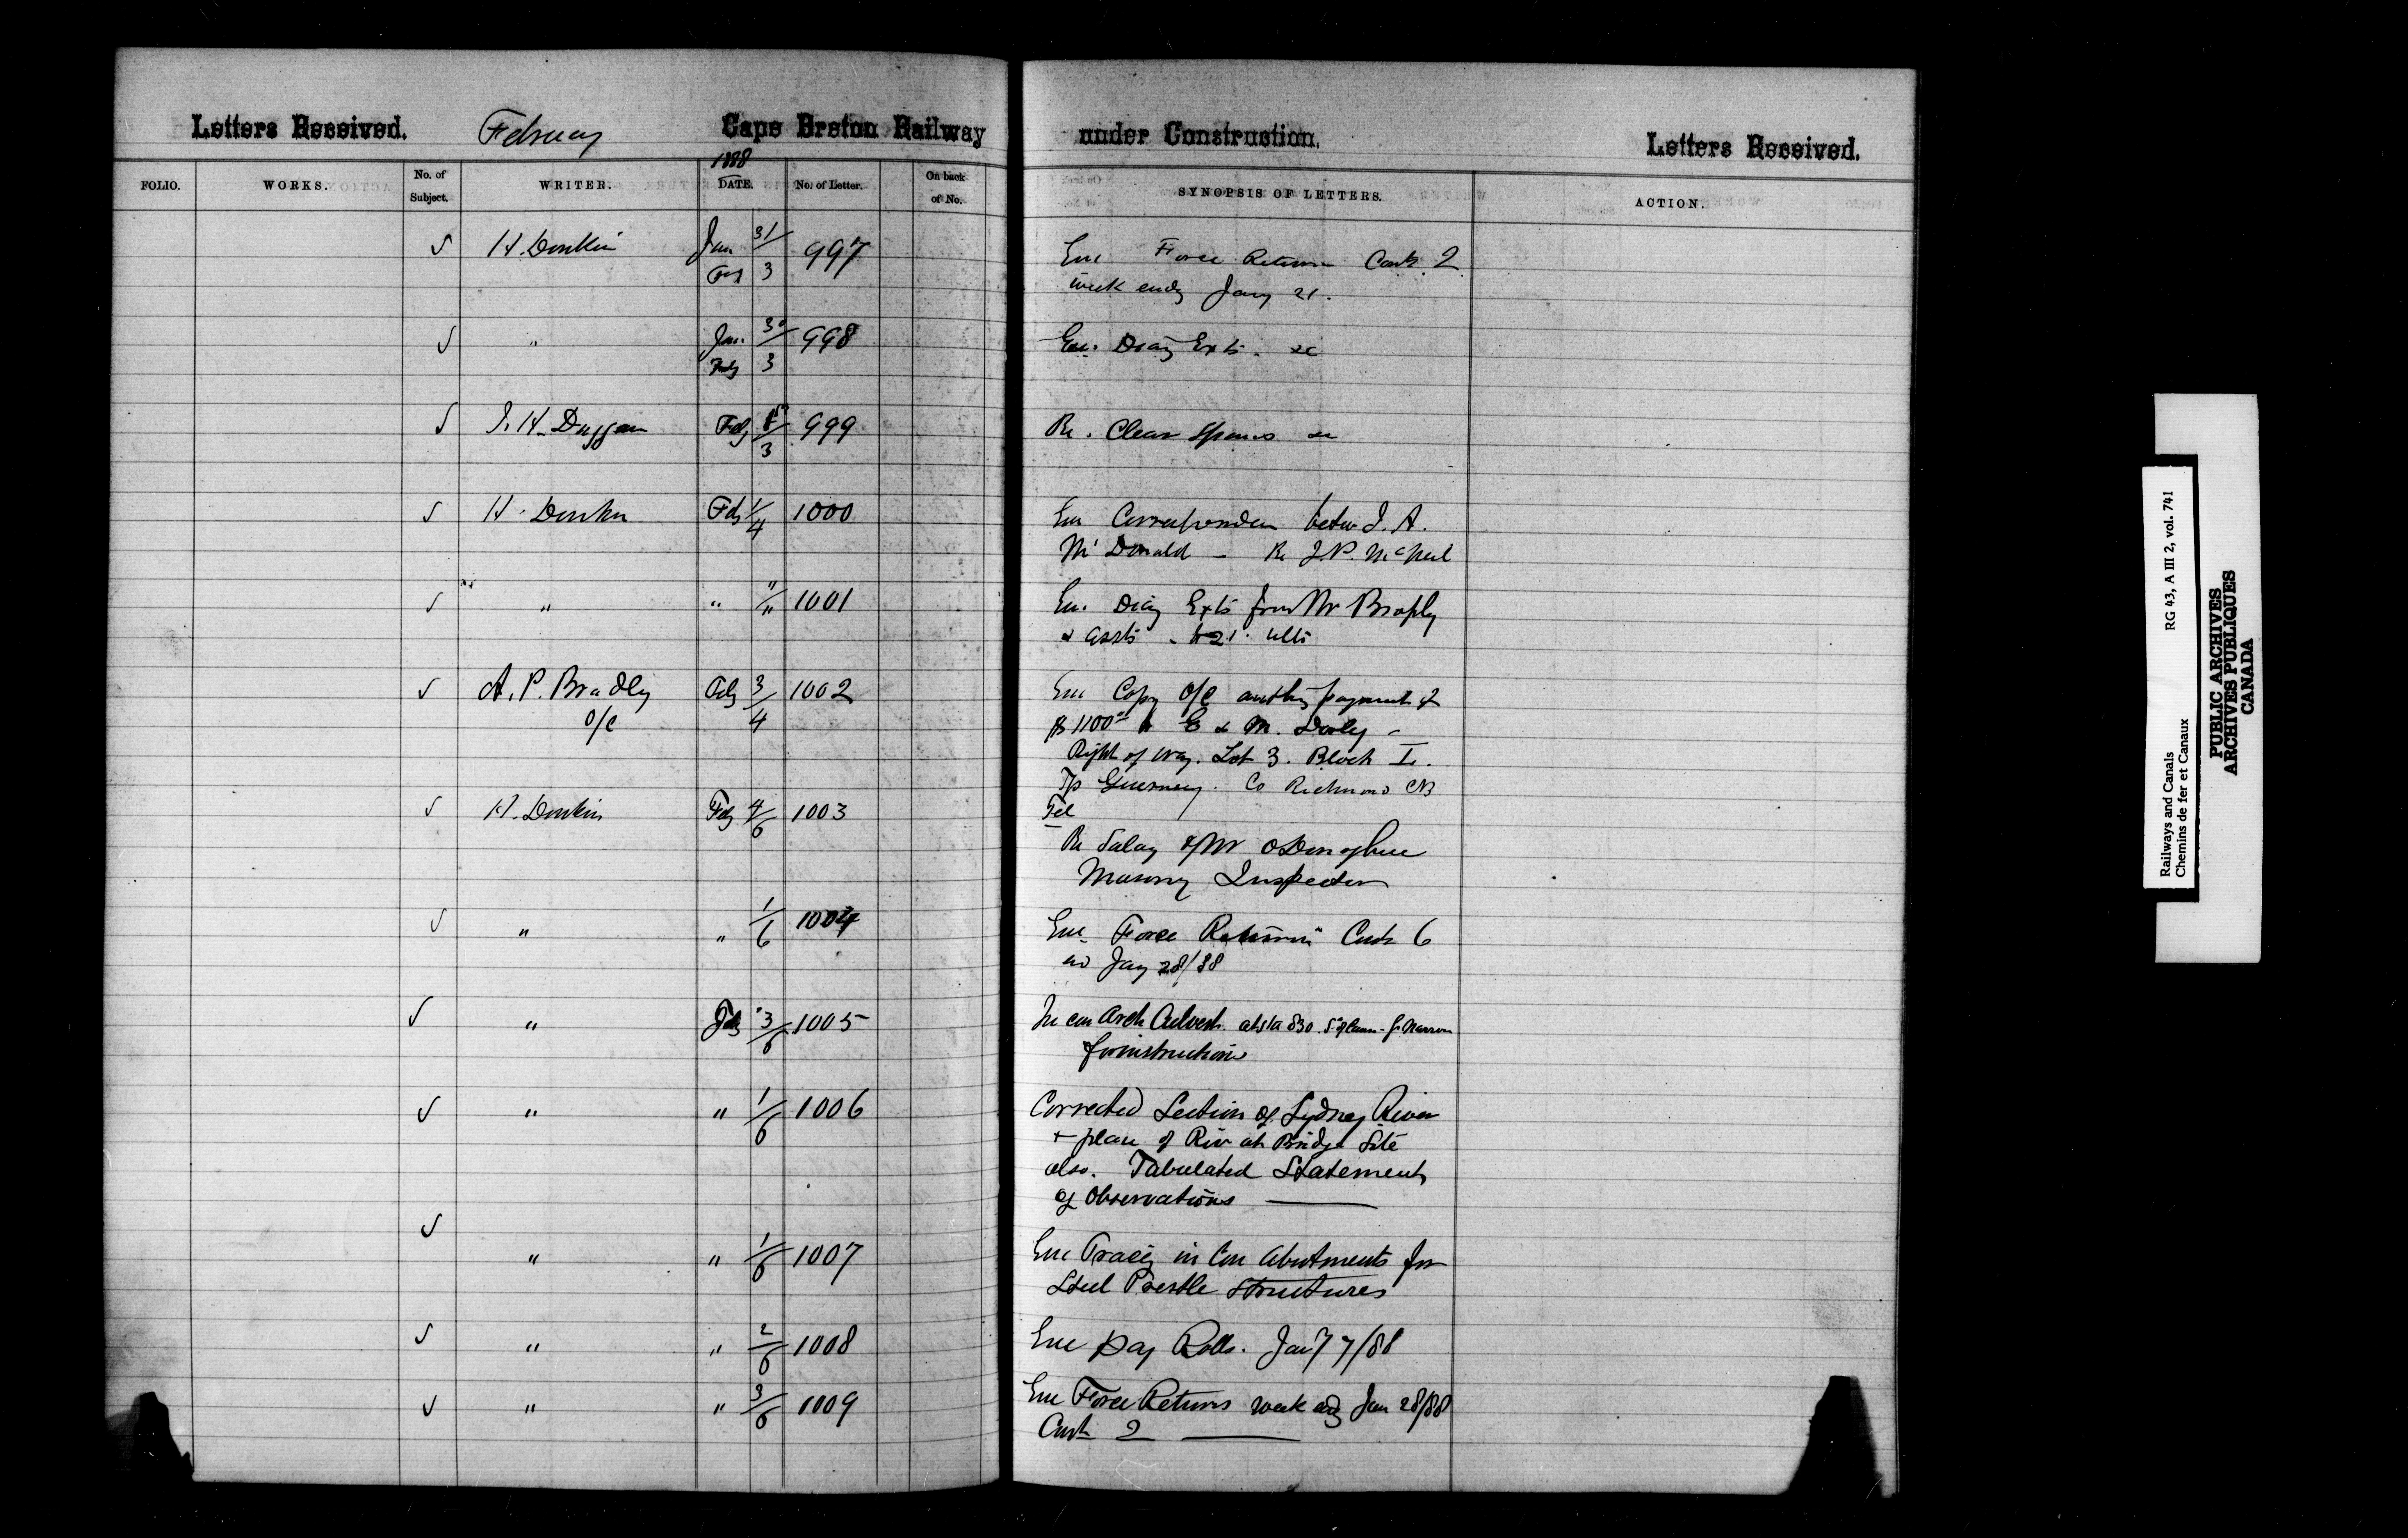 Letters Received. February Cape Breton Railway under Construction. Letters Received.
1888
FOLIO. WORKS. No. of Subject. WRITER. DATE. No. of Letter. On back of No. SYNOPSIS OF LETTERS. ACTION.
✓ H. Donkin Jan 31/ 997 Enc Force Return Cont. 2
Feby 3 week endg Jany 21.
✓ " Jan. 30/ 998 Enc. Diary Exts. &c
Feby 3
✓ Feby 999 Re. Clear Spans &c
G. H. Duggan 3
✓ H. Donkin Feby 1/4 1000 Enc Correspondence betw J. A.
McDonald - Re J. P. McNeil
✓ " " "/" 1001 Enc. Diary Exts from Mr Brophy
& Assts - to 21. ulto
✓ A. P. Bradley Feby 3/4 1002 Enc Copy O/C authg payment of
O/C $1100 to E & M. Dooly -
Right of Way. Lot 3. Block I.
Tp Guernsey. Co Richmond CB
✓ H. Donkin Feby 4/6 1003 Tel
Re Salary of Mr ODonoghue
Masonry Inspector
✓ " " 1/6 1004 Enc Force Returns Cont 6
Jany 28/88
✓ " Feby 3/6 1005 Arch Culvert. at Sta 830.
for instructions
✓ " " 1/6 1006 Corrected Section of Sydney River
+ plan of Riv at Bridge Site
also. Tabulated Statement
of Observations
✓ " " 1/6 1007 Enc Tracig in Con Abutments for
Steel Trestle Structures
✓ " " 2/6 1008 Enc Pay Rolls. Jany 7/88
✓ " " 3/6 1009 Enc Force Returns week edg Jan 28/88
Cont 2
Railways and Canals RG 43, A III 2, vol. 741
Chemins de fer et Canaux
PUBLIC ARCHIVES
ARCHIVES PUBLIQUES
CANADA